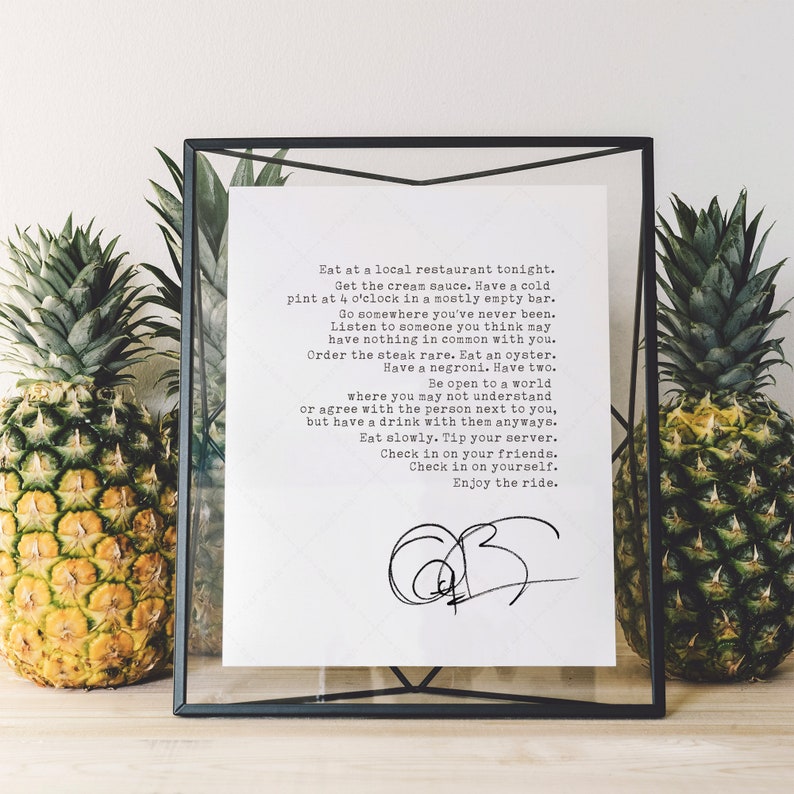 Eat at a local restaurant tonight.
Get the cream sauce. Have a cold
pint at 4 o'clock in a mostly empty bar.
Go somewhere you've never been.
Listen to someone you think may
have nothing in common with you.
Order the steak rare. Eat an oyster.
Have a negroni. Have two.
Be open to a world
where you may not understand
or agree with the person next to you,
but have a drink with them anyways.
Eat slowly. Tip your server.
Check in on your friends.
Check in on yourself.
Enjoy the ride.